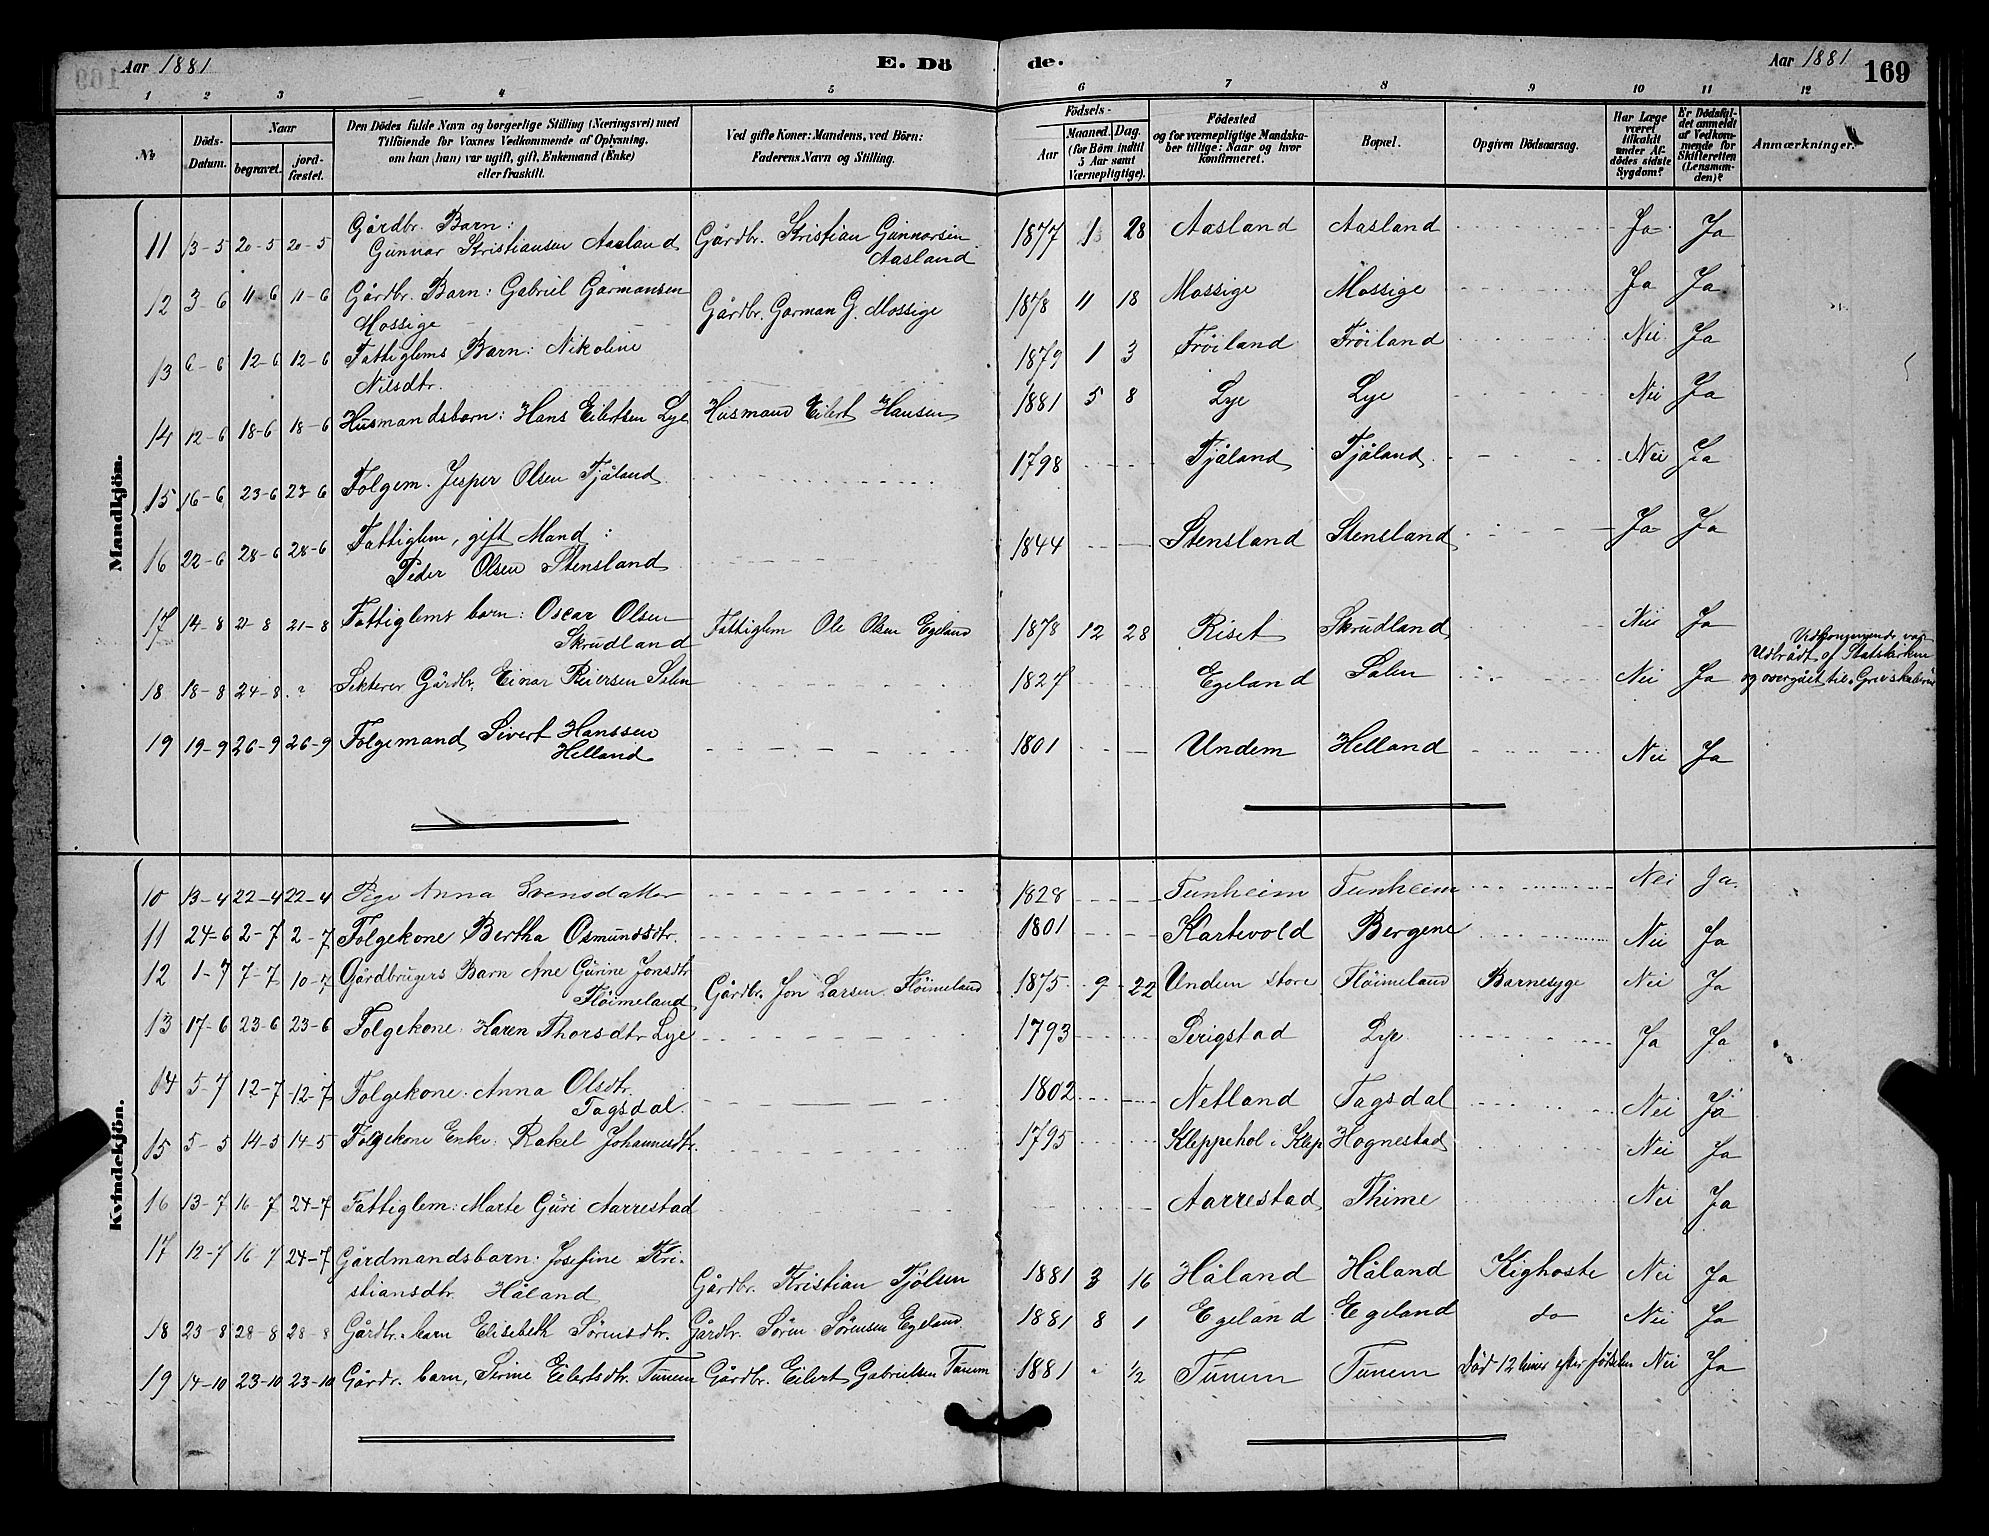 Aar 1881
E. Dö
de.
Aar 1881
169
1 2 3 4 5 6 7 8 9 10 11 12
No
Döds-Datum.
Naar
begravet.
jord-fæstet.
Den Dödes fulde Navn og borgerlige Stilling (Næringsvei) med
Tilföiende for Voxnes Vedkommende af Oplysning,
om han (hun) var ugift, gift, Enkemand (Enke)
eller fraskilt.
Ved gifte Koner: Mandens, ved Börn:
Faderens Navn og Stilling.
Födsels-
Aar
Maaned. Dag.
(for Börn indtil
5 Aar samt
Værnepligtige).
Födested
og for værnepligtige Mandska-
ber tillige: Naar og hvor
konfirmeret.
Bopæl.
Opgiven Dödsaarsag.
Har Læge
været
tilkaldt
under Af-
dödes sidste
Sygdom?
Er Dödsfal-
det anmeldt
af Vedkom-
mende for
Skifteretten
(Lensman-
den)?
Anmærkninger.
Mandkjön.
11 13-5 20-5 20-5 Gårdbr. Barn:
Gunnar Kristiansen Aasland Gårdbr. Kristian Gunnarsen
Aasland 1877 1 28 Aasland Aasland Ja Ja
12 3-6 11-6 11-6 Gårdbr. Barn: Gabriel Gårmansen
Mossige Gårdbr. Garman G. Mossige 1878 11 18 Mossige Mossige Ja Ja
13 6-6 12-6 12-6 Fattiglems Barn: Nikoline
Nilsdtr. 1879 1 3 Fröiland Fröiland Nei Ja
14 12-6 18-6 18-6 Husmandsbarn: Hans Eilertsen Lye Husmand Eilert Hansen 1881 5 8 Lye Lye Nei Ja
15 16-6 23-6 23-6 Folgem. Jesper Olsen Tjåland 1798 Tjåland Tjåland Nei Ja
16 22-6 28-6 28-6 Fattiglem, gift Mand:
Peder Olsen Stensland 1844 Stensland Stensland Ja Ja
17 14-8 21-8 21-8 Fattiglems barn: Oscar Olsen
Skrudland Fattiglem Ole Olsen Egeland 1878 12 28 Riset Skrudland Nei Ja
18 18-8 24-8 ? Sekterer Gårdbr. Einar Reiersen Salen 1827 Egeland Salen Nei Ja
Vedkommende var
Udtrådt af Statskirken
og overgået til
19 19-9 26-9 26-9 Folgemand Sivert Hanssen
Helland 1801 Undem Helland Nei Ja
Kvindekjön.
10 13-4 22-4 22-4 Pige Anna Svensdatter 1828 Tunheim Tunheim Nei Ja
11 24-6 2-7 2-7 Folgekone Bertha Osmundsdtr. 1801 Kartevold Bergene Nei Ja
12 1-7 7-7 10-7 Gårdbrugers Barn Ane Gurine Jonsdtr
Flöimeland Gårdbr. Jon Larsen Flöimeland 1875 9 22 Undem store Flöimeland Barnesyge Nei Ja
13 17-6 23-6 23-6 Folgekone Karen Thorsdtr Lye 1793 Serigstad Lye Ja Ja
14 5-7 12-7 12-7 Folgekone Anna Olsdtr.
Tagsdal. 1802 Netland Tagsdal Nei Ja
15 5-5 14-5 14-5 Folgekone Enke: Rakel Johannesdtr. 1795 Kleppehol i Klep Hognestad Nei Ja
16 13-7 16-7 24-7 Fattiglem: Marte Guri Aarrestad Aarrestad Thime Nei Ja
17 12-7 16-7 24-7 Gårdmandsbarn: Josefine Kri-
stiansdtr. Håland Gårdbr. Kristian Tjölsen 1881 3 16 Håland Håland Kighoste Nei Ja
18 23-8 28-8 28-8 Gårdbr. barn Elisebeth Sörensdtr. Gårdbr. Sören Sörensen Egeland. 1881 8 1 Egeland Egeland do Nei Ja
19 14-10 23-10 23-10 Gårdr. barn, Serine Eilertsdtr. Tunem Gårdbr. Eilert Gabrielsen Tunem 1881 " 1/2 Tunem Tunem död 12 timer efter födselen Nei Ja